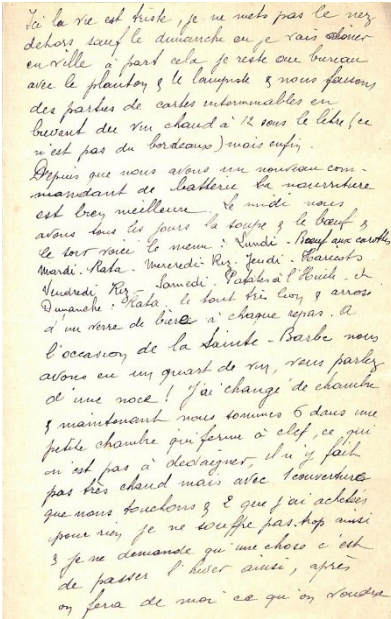 Ici la vie est triste, je ne mets pas le nez
dehors sauf le dimanche ou je vais diner
en ville à part cela je reste au bureau
avec le planton & le lampiste & nous faisons
des parties de cartes interminables en
buvant du vin chaud à 12 sous le litre (ce
n'est pas du bordeaux) mais enfin.
Depuis que nous avons un nouveau com-
mandant de batterie la nourriture
est bien meilleure. Le midi nous
avons tous les jours la soupe & le bœuf &
le soir voici le menu : Lundi - Bœuf aux carottes
Mardi - Rata - Mercredi Riz - Jeudi - Haricots
Vendredi Riz - Samedi - Patates à l'Huile - et
Dimanche : Rata. le tout très bon & arrosé
d'un verre de bière à chaque repas. A
l'occasion de la Sainte-Barbe nous
avons eu un quart de vin, vous parlez
d'une noce ! J'ai changé de chambre
& maintenant nous sommes 6 dans une
petite chambre qui ferme à clef, ce qui
n'est pas à dédaigner, il n'y fait
pas très chaud mais avec 1 couverture
que nous touchons & 2 que j'ai achetées
pour rien je ne souffre pas trop ainsi
& je ne demande qu'une chose c'est
de passer l'hiver ainsi, après
on fera de moi ce qu'on voudra